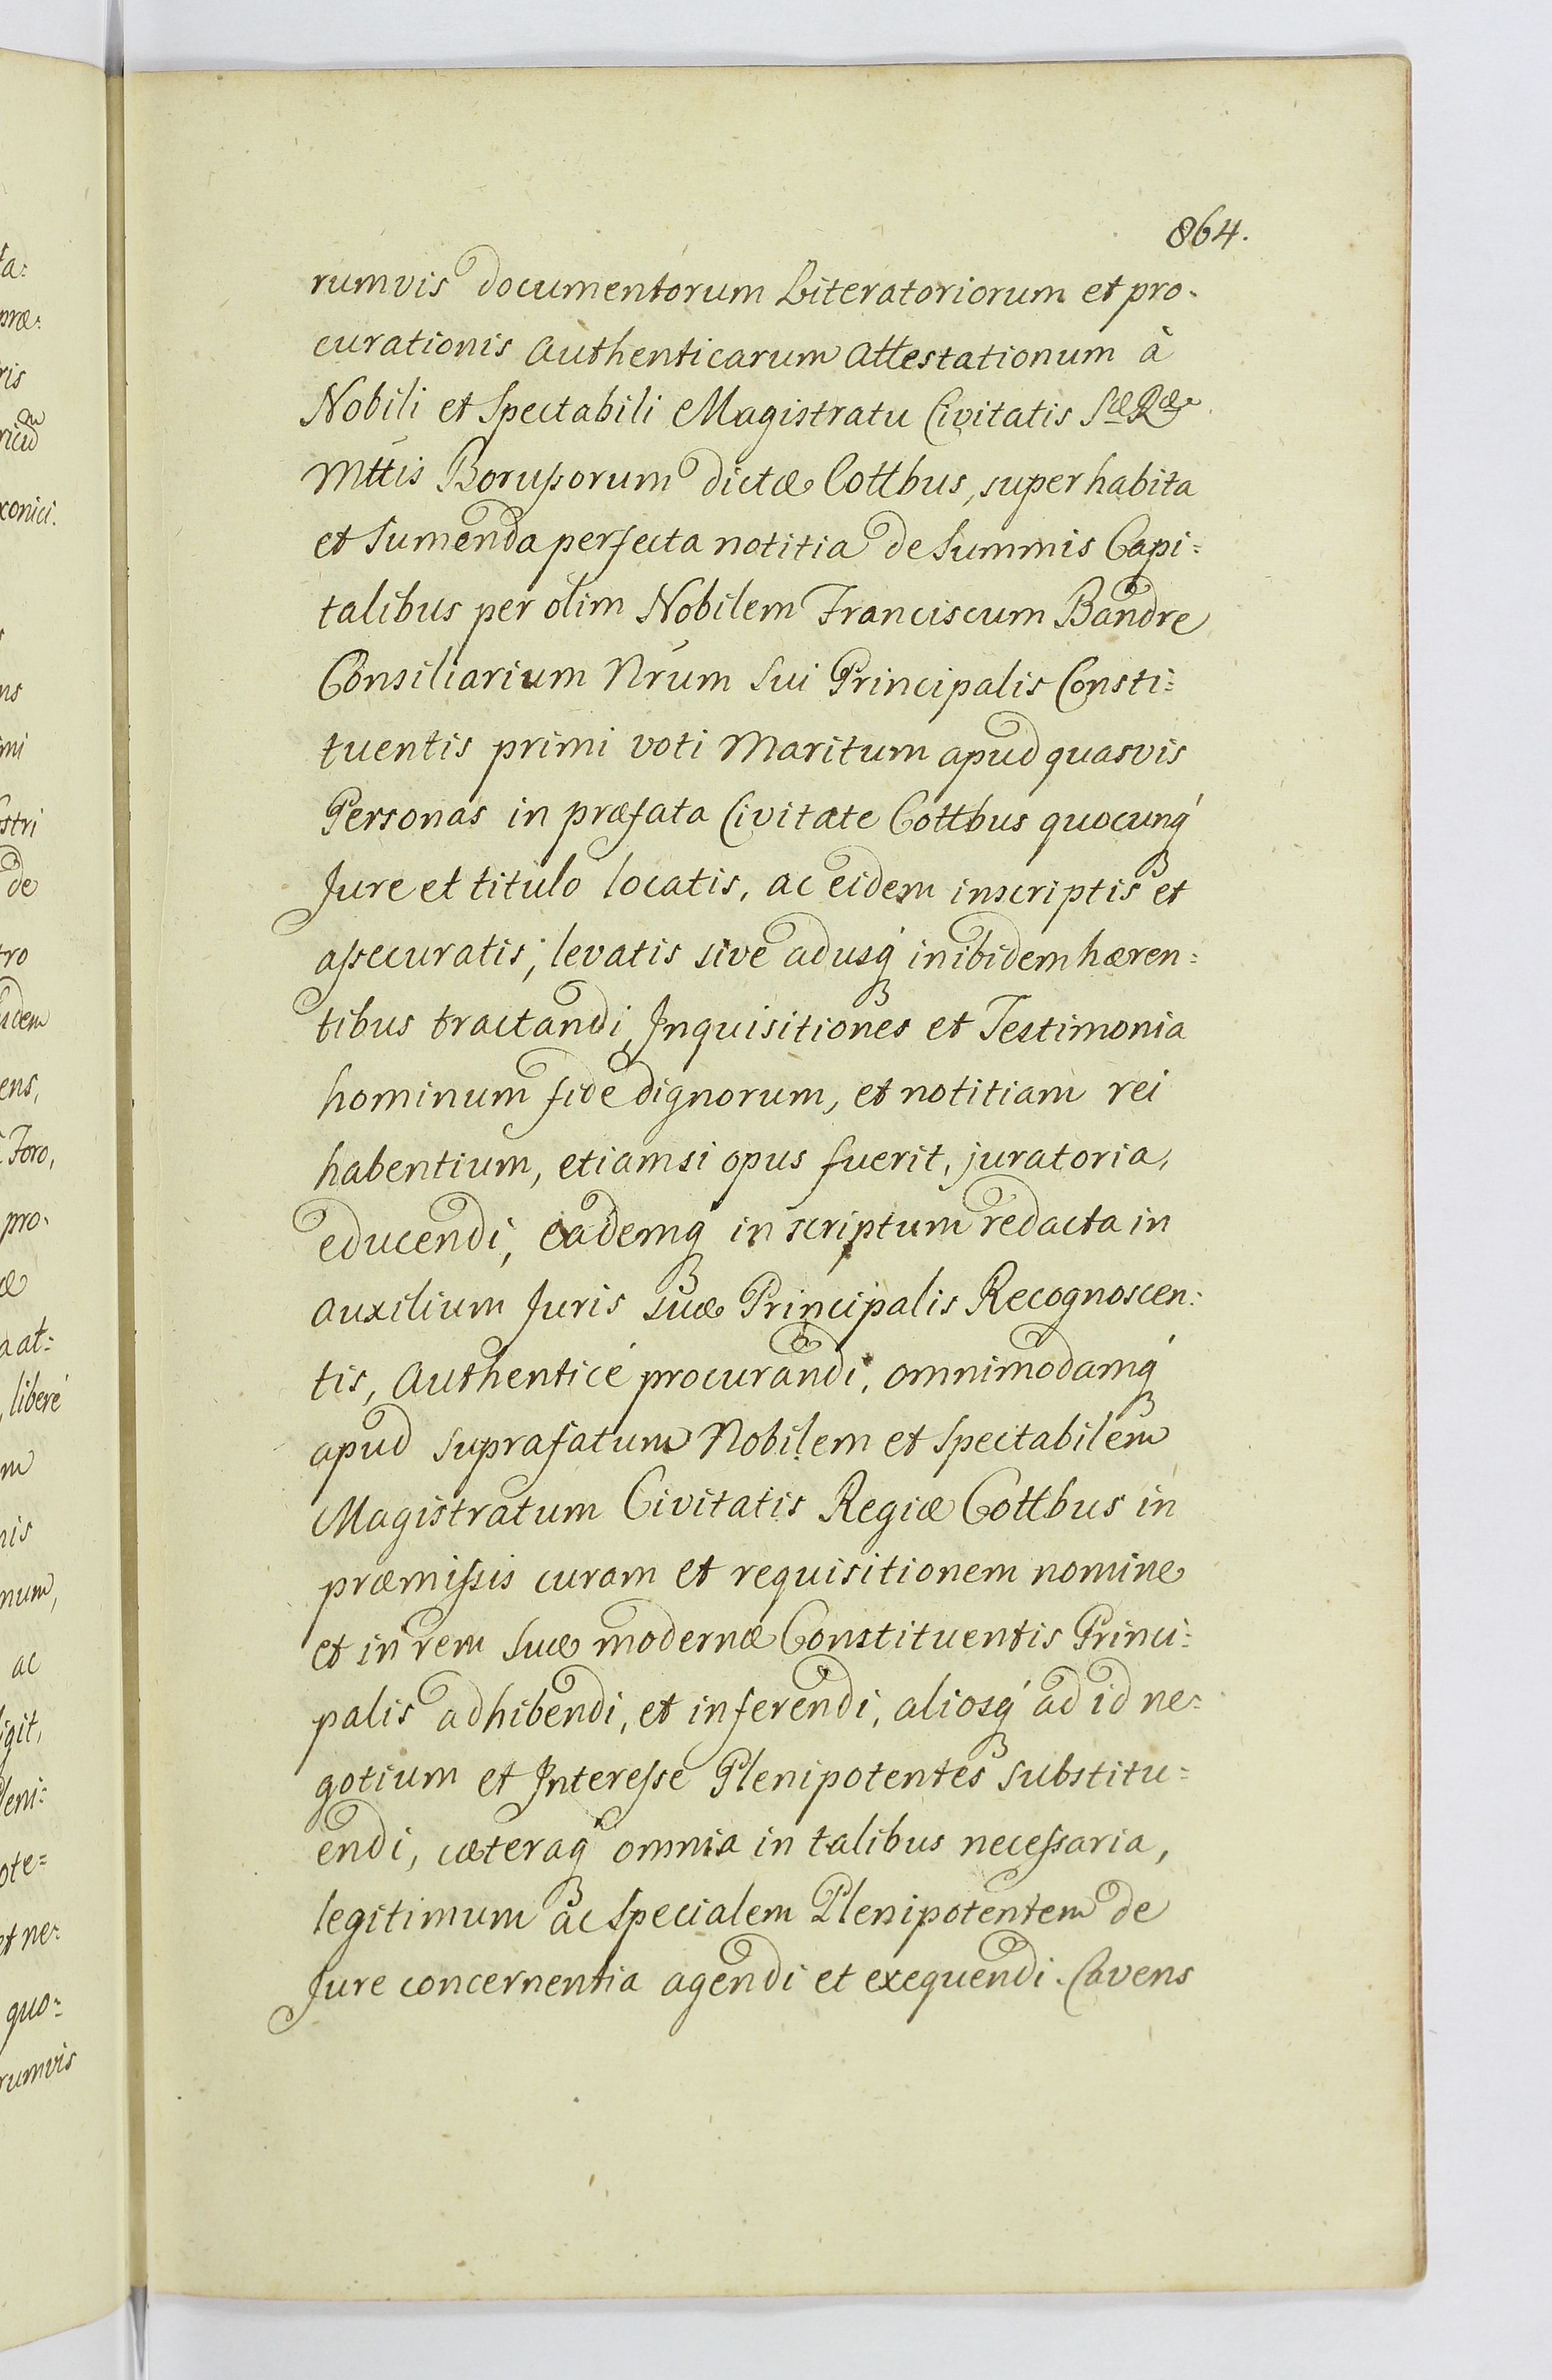 864.
rumvis documentorum Literatoriorum et pro-
curationis Authenticarum Attestationum à
Nobili et Spectabili Magistratu Civitatis Sæ Ræ
Mttis Borussorum dictæ Cottbus, super habita
et Sumenda perfecta notitia de Summis Capi=
talibus per olim Nobilem Franciscum Bandre
Consiliarium Nrum Sui Principalis Consti=
tuentis primi voti Maritum apud quasvis
Personas in præfata Civitate Cottbus quocunq́
Jure et titulo locatis, ac eidem inscriptis et
assecuratis, levatis sive adusq́ inibidem hæren=
tibus tractandi, Inquisitiones et Testimonia
hominum fide dignorum, et notitiam rei
habentium, etiamsi opus fuerit, juratoria,
educendi, eademq́ in scriptum redacta in
auxilium Juris Suæ Principalis Recognoscen=
tis, Authenticé procurandi, omnimodamq́
apud suprafatum Nobilem et Spectabilem
Magistratum Civitatis Regiæ Cottbus in
præmissis curam et requisitionem nomine
et in rem Suæ modernæ Constituentis Princi=
palis adhibendi, et inferendi, aliosq́ ad id ne=
gotium et Interesse Plenipotentes substitu=
endi, cæteraq́ omnia in talibus necessaria,
legitimum ac Specialem Plenipotentem de
Jure concernentia agendi et exequendi. Cavens